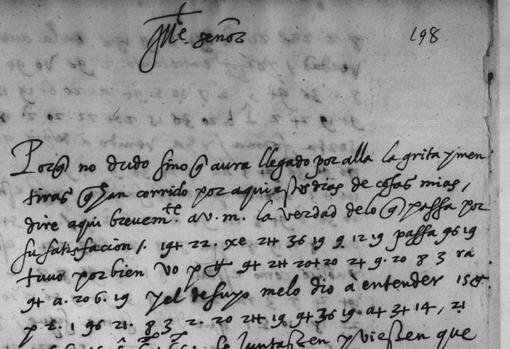 Ille señor
198
Porq̃ no dudo sino q̃ aura llegado por alla la grita y men
tiras q̃ han corrido por aqui estos dias de cosas mias,
dire aqui brevem.te a v. m. la verdad de lo q̃ passa por
su satisfacion /. 19+ 22. xe 2+ 36 19 9 12 19 passa 96 19
tuvo por bien vo p 9+ 2+ 20+20 2+ 9. 20 8 3 ra
9+ a. 20 6. 19 y el de suyo me lo dio à entender
p 2. 1 96 21. 8 3 2. 20 2+ 19 9+ 36 19. a+ 3+ 14, 21
se juntassen y viessen que